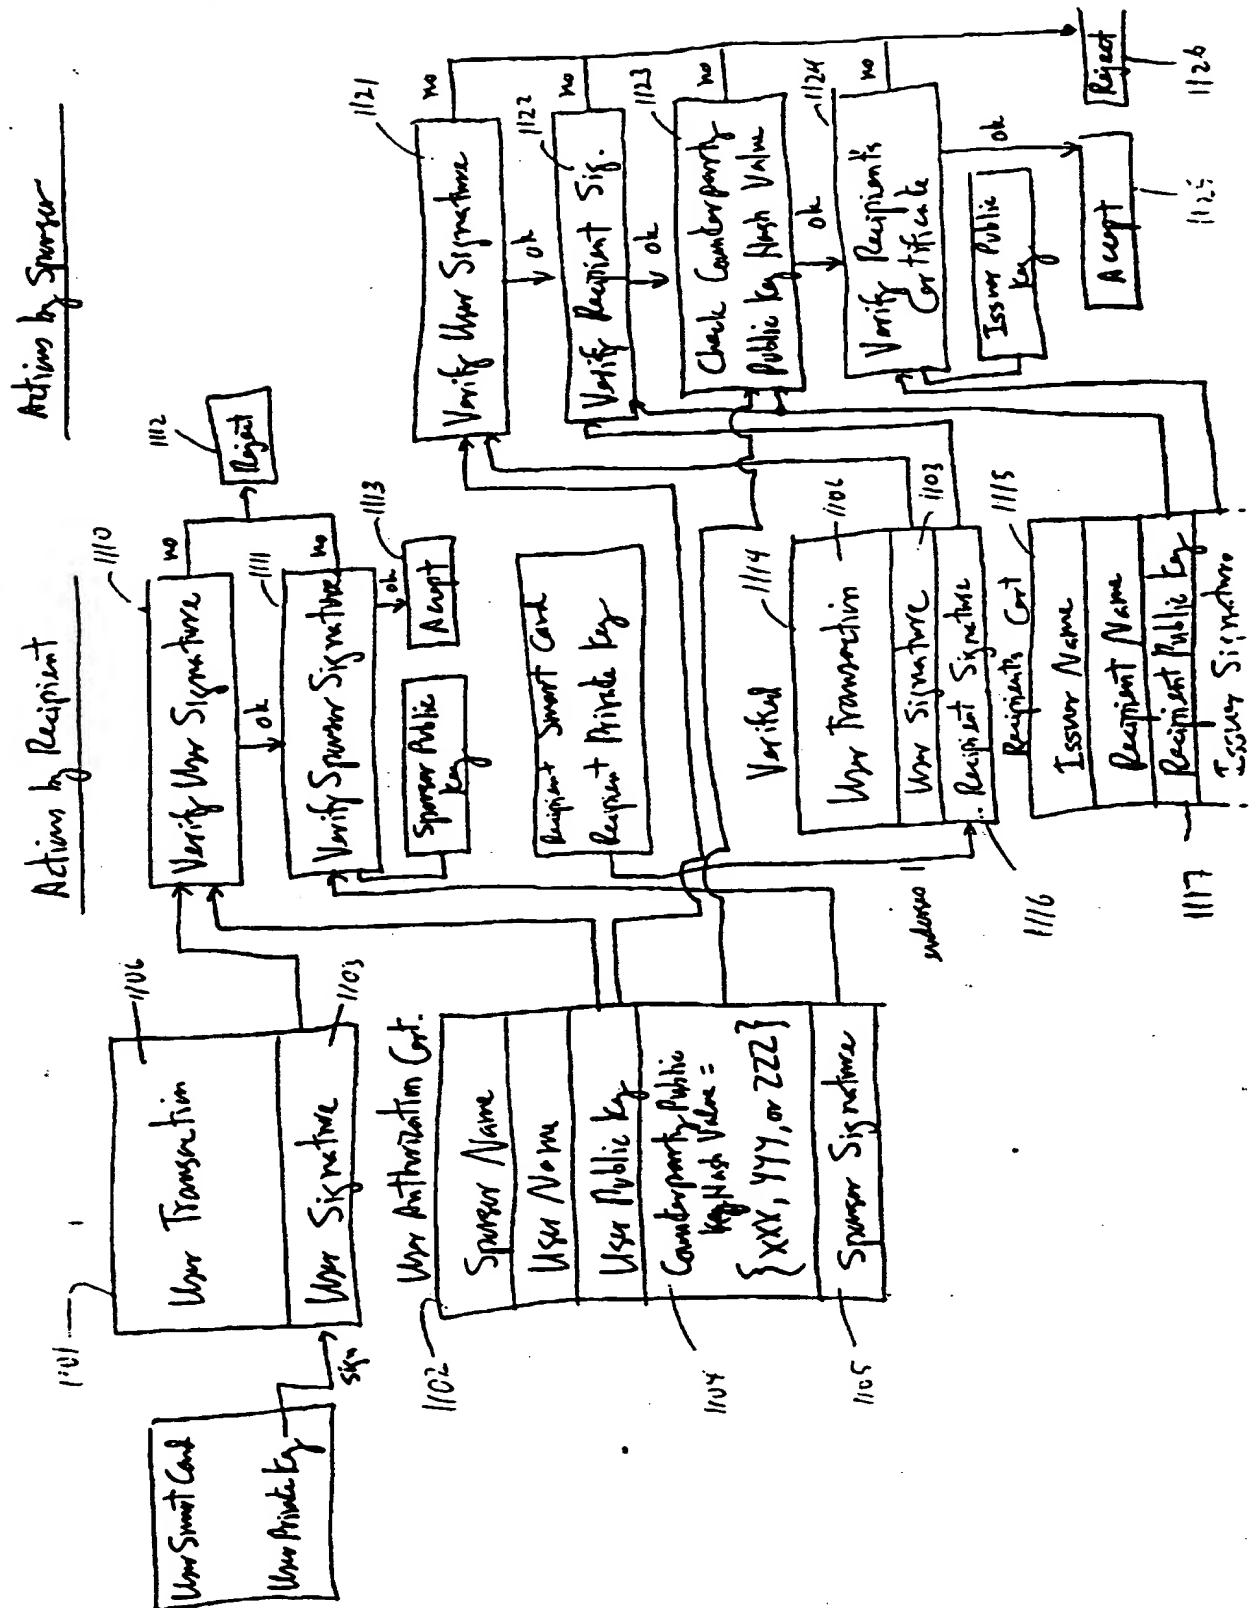 Actions by Recipient
Actions by Sponsor
User Smart Card
User Private Key
sign
1101
User Transaction
1106
User Signature
1103
User Authorization Cert.
1102
Sponsor Name
User Name
User Public Key
Counterparty Public
Key Hash Value =
{XXX, YYY, or ZZZ}
1104
Sponsor Signature
1105
1110
Verify User Signature
no
ok
1111
Verify Sponsor Signature
no
ok
1112
Reject
1113
Accept
Sponsor Public
Key
Recipient Smart Card
Recipient Private Key
endorses
Verified
1114
User Transaction
1106
User Signature
1103
Recipient Signature
1116
Recipients Cert
1115
Issuer Name
Recipient Name
Recipient Public Key
1117
Issuer Signature
1121
Verify User Signature
no
ok
1122
Verify Recipient Sig.
no
ok
1123
Check Counterparty
Public Key Hash Value
no
ok
1124
Verify Recipient's
Certificate
no
ok
Issuer Public
Key
Accept
1125
Reject
1126